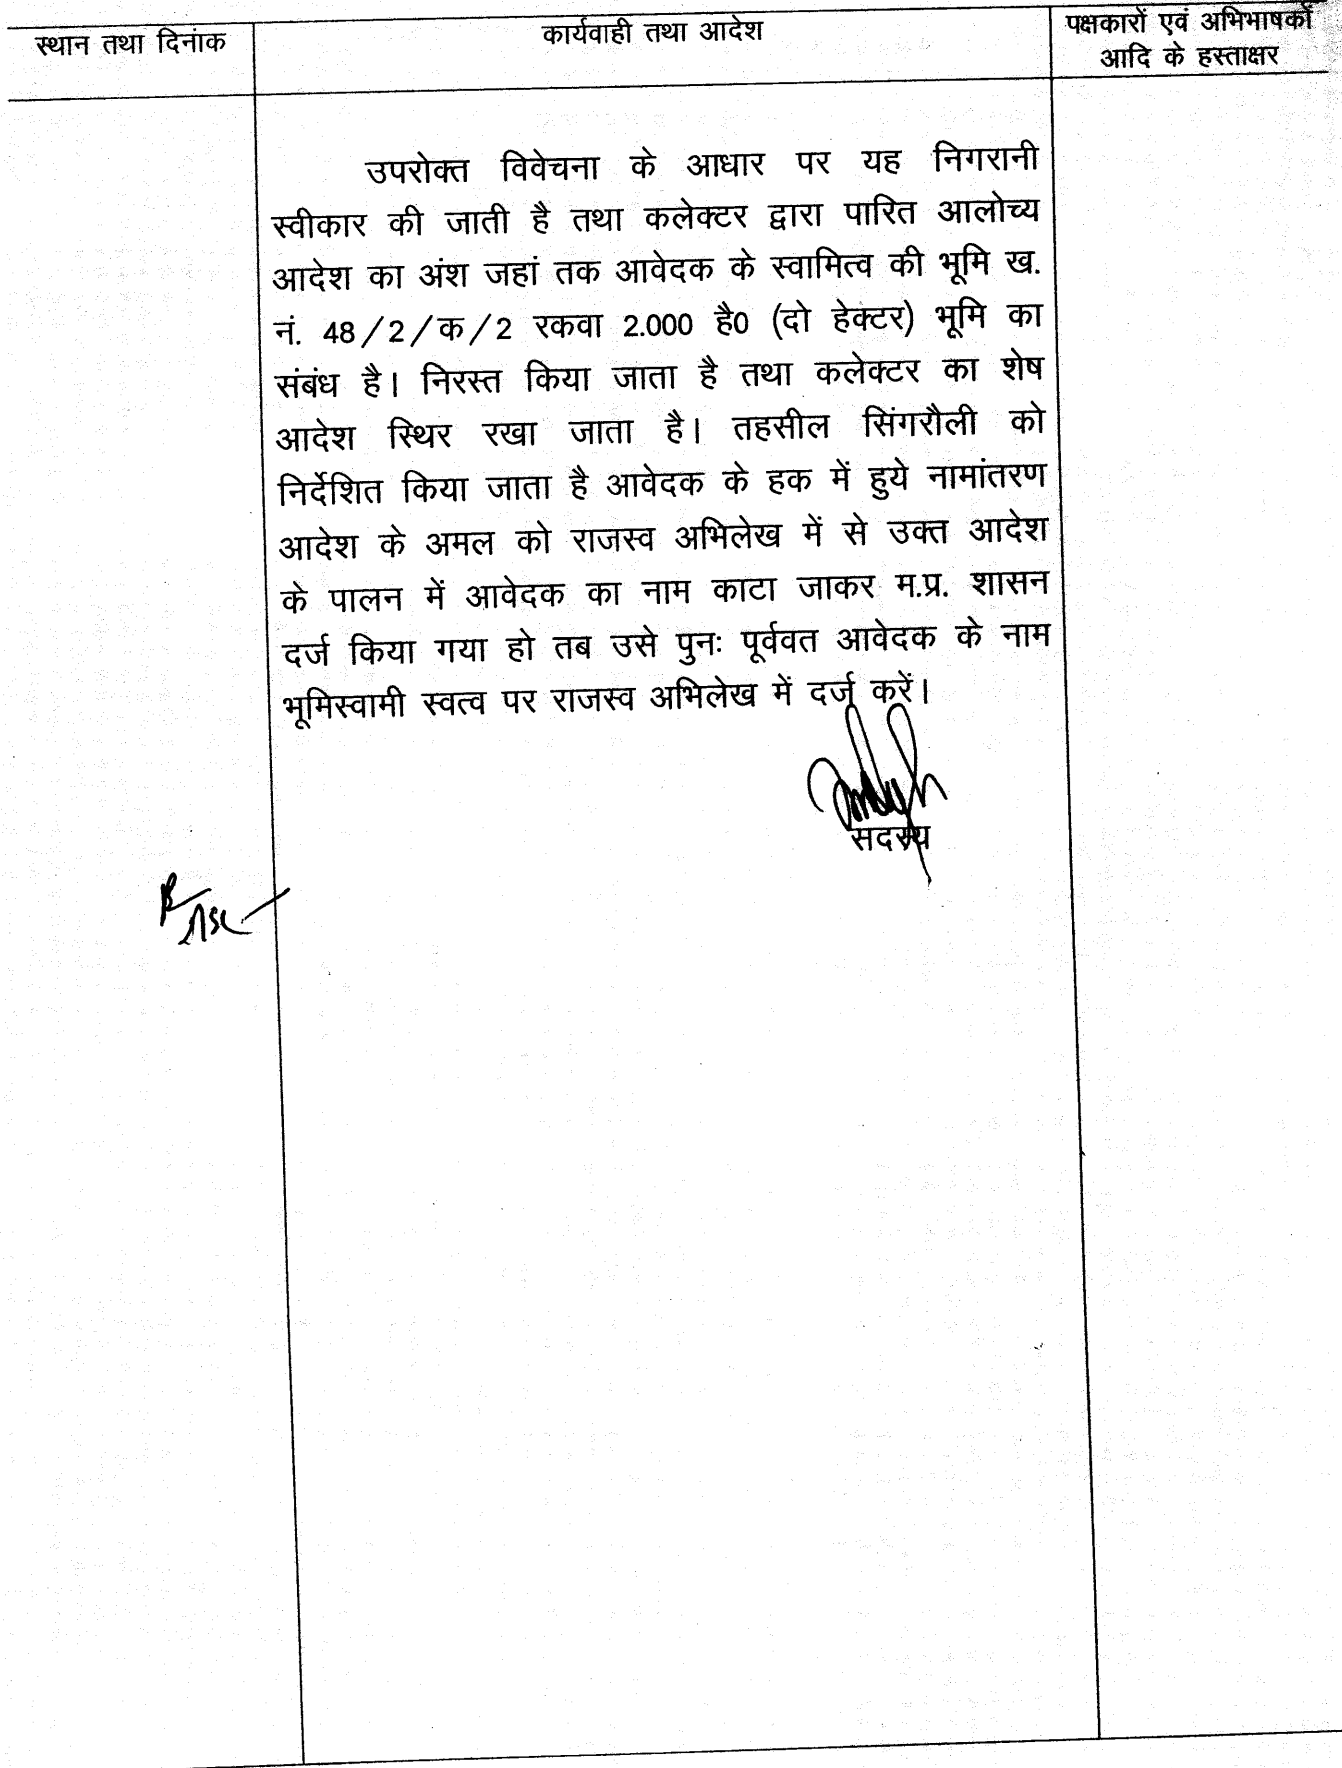 स्थान तथा दिनांक
कार्यवाही तथा आदेश
पक्षकारों एवं अभिभाषकों
आदि के हस्ताक्षर
उपरोक्त विवेचना के आधार पर यह निगरानी
स्वीकार की जाती है तथा कलेक्टर द्वारा पारित आलोच्य
आदेश का अंश जहां तक आवेदक के स्वामित्व की भूमि ख.
नं. 48/2/क/2 रकवा 2.000 है0 (दो हेक्टर) भूमि का
संबंध है। निरस्त किया जाता है तथा कलेक्टर का शेष
आदेश स्थिर रखा जाता है। तहसील सिंगरौली को
निर्देशित किया जाता है आवेदक के हक में हुये नामांतरण
आदेश के अमल को राजस्व अभिलेख में से उक्त आदेश
के पालन में आवेदक का नाम काटा जाकर म.प्र. शासन
दर्ज किया गया हो तब उसे पुनः पूर्ववत आवेदक के नाम
भूमिस्वामी स्वत्व पर राजस्व अभिलेख में दर्ज करें।
सदस्य